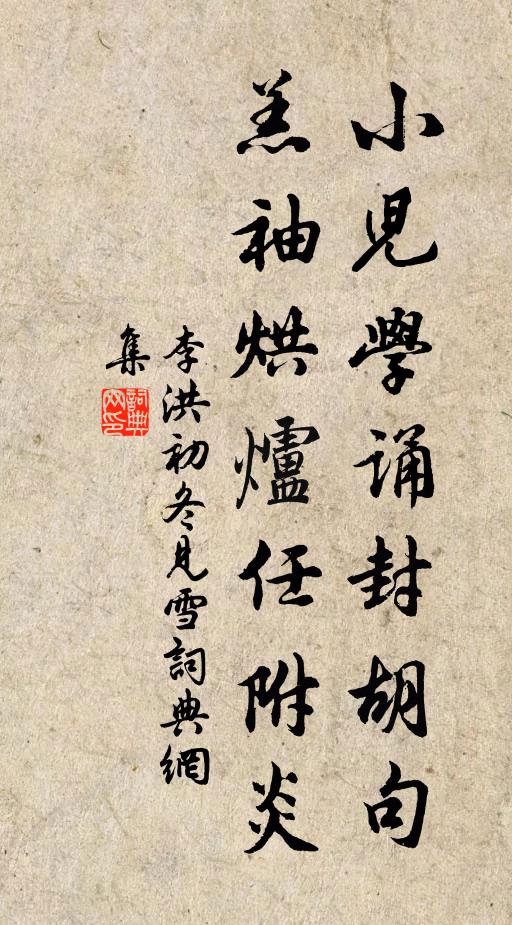 小児學誦封胡句
羔袖烘爐任附炎
李洪初冬見雪詞典網
集
詞典網印